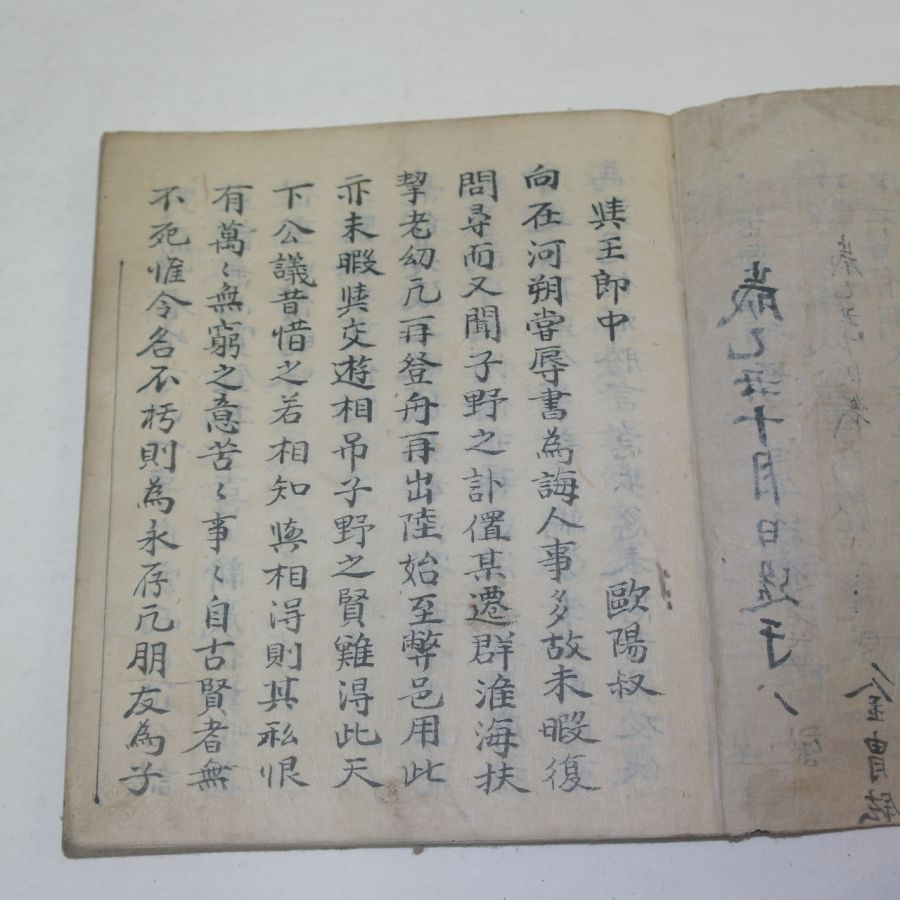 與王郎中
歐陽叔
向在河朔嘗辱書為誨人事多故未暇復
問尋而又聞子野之訃值某遷群淮海扶
挈老幼凡再登舟再出陸始至弊邑用此
亦未暇與交遊相吊子野之賢難得此天
下公議昔惜之若相知與相得則其私恨
有萬〻無窮之意苦〻事〻自古賢者無
不死惟令名不朽則為永存凡朋友為子
歲乙
十月日